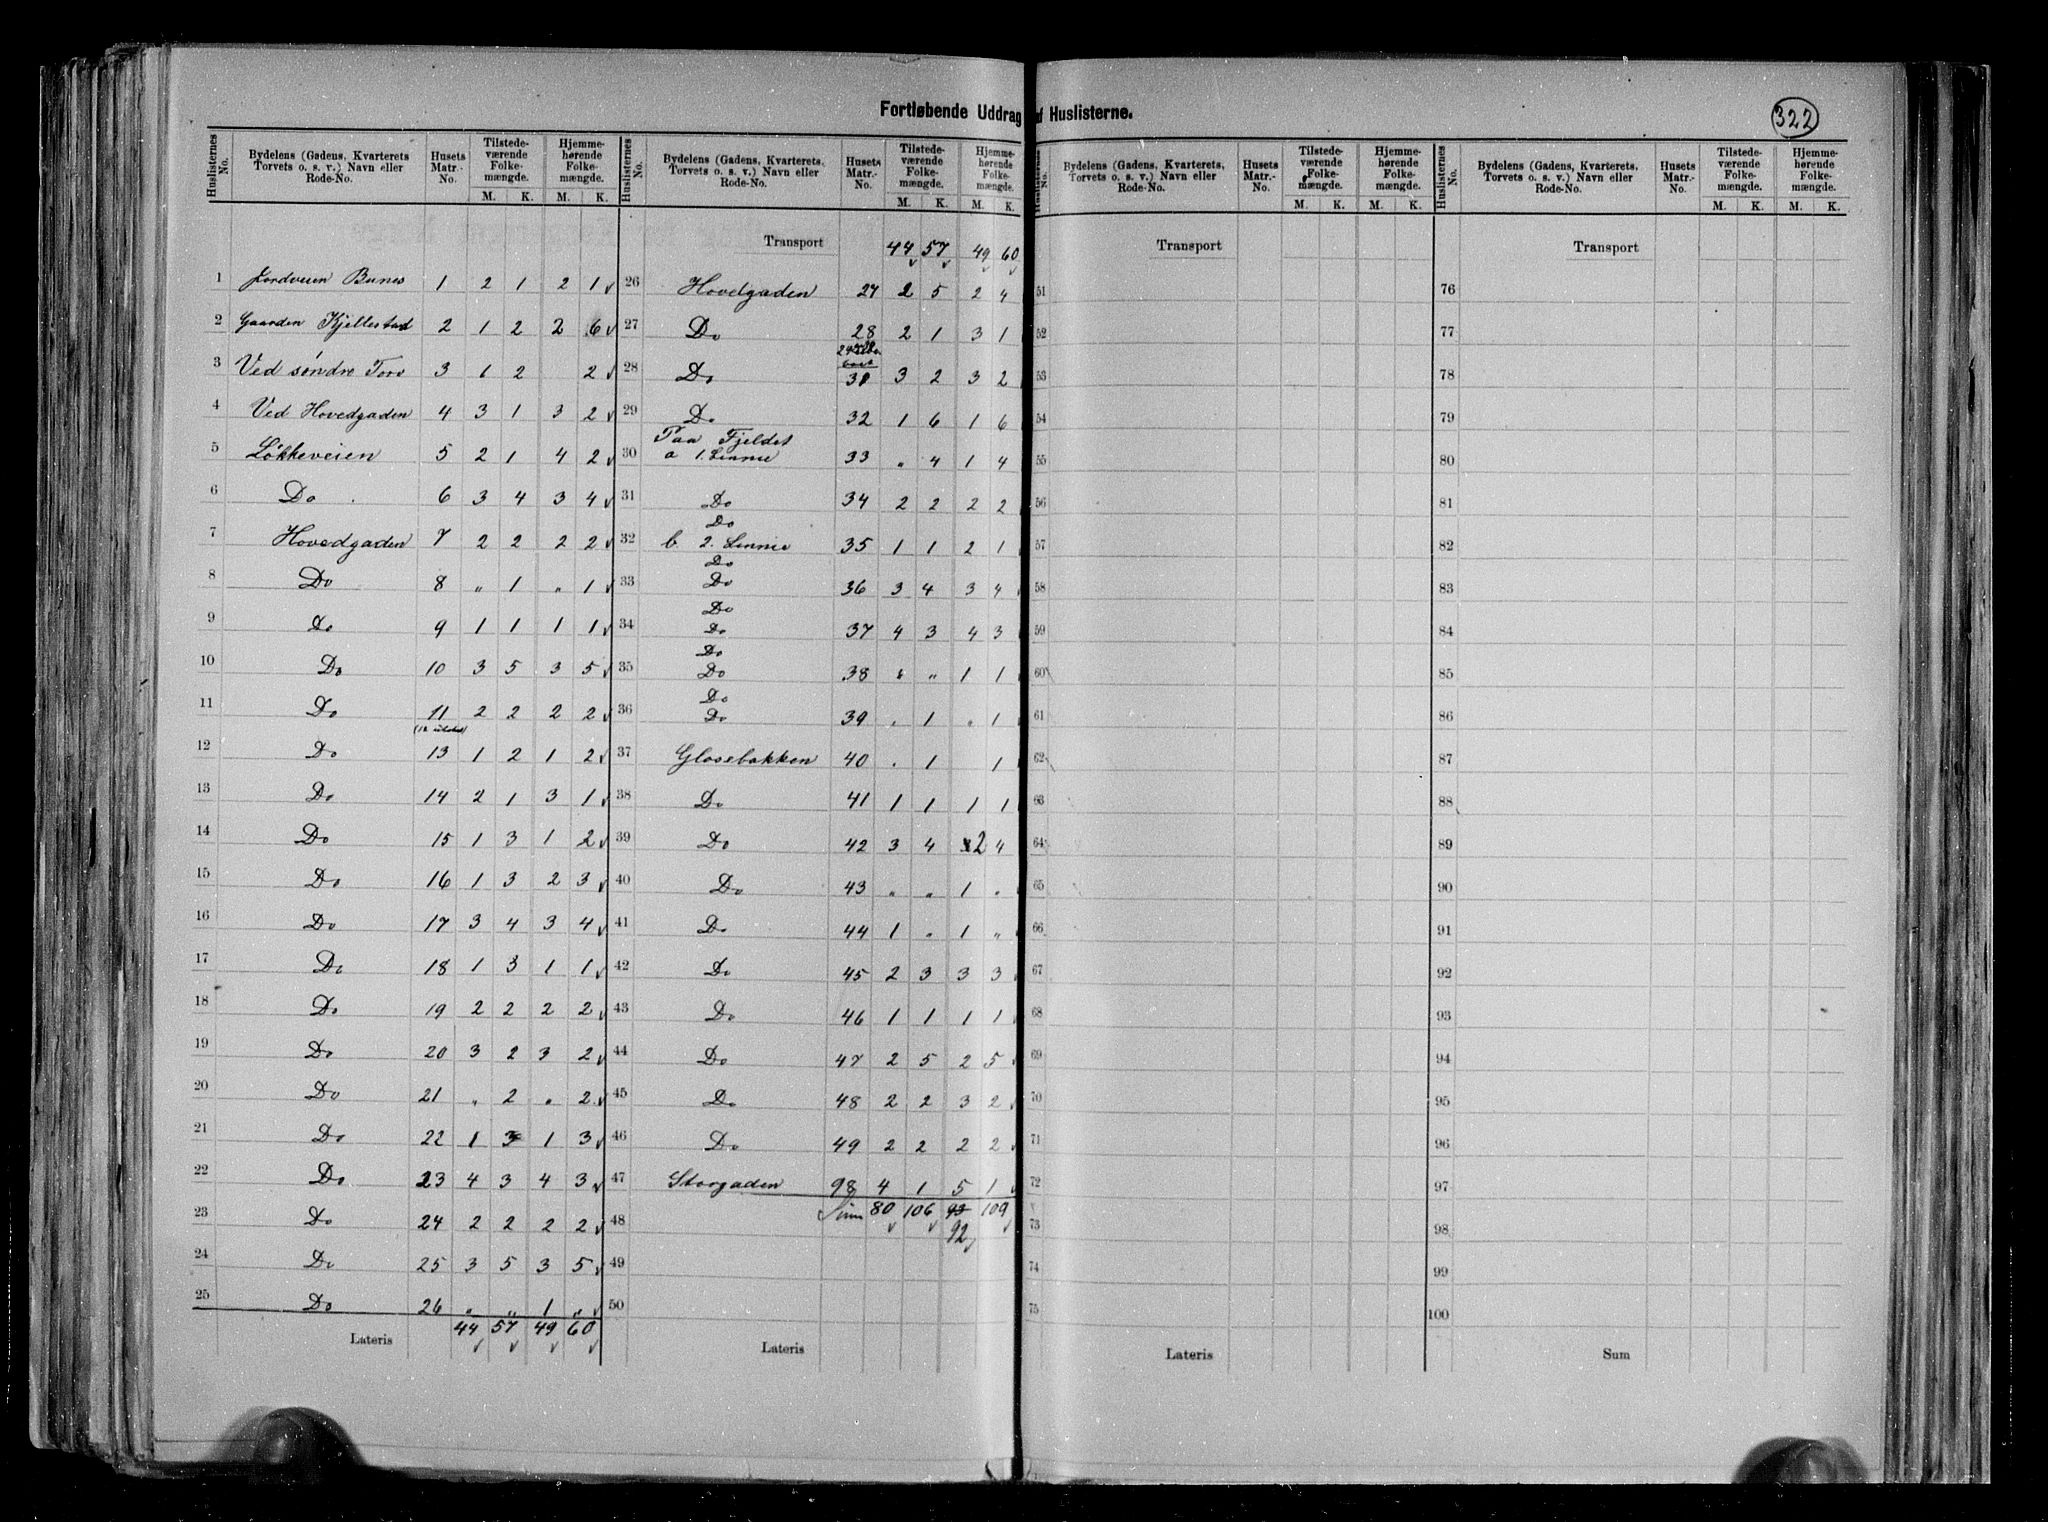 Fortløbende Uddrag af Huslisterne.
322
Huslisternes No. Bydelens (Gadens, Kvarterets Torvets o. s. v.) Navn eller Rode-No. Husets Matr.-No. Tilstedeværende Folkemængde. M. K. Hjemmehørende Folkemængde. M. K.
1 Jordveien Bunes 1 2 1 2 1
2 Gaarden Kjellestad 2 1 2 2 6
3 Ved søndre Torv 3 1 2 2
4 Ved Hovedgaden 4 3 1 3 2
5 Løkkeveien 5 2 1 4 2
6 Do 6 3 4 3 4
7 Hovedgaden 7 2 2 2 2
8 Do 8 " 1 " 1
9 Do 9 1 1 1 1
10 Do 10 3 5 3 5
11 Do 11 2 2 2 2
12 Do 13 1 2 1 2
13 Do 14 2 1 3 1
14 Do 15 1 3 1 2
15 Do 16 1 3 2 3
16 Do 17 3 4 3 4
17 Do 18 1 3 1 1
18 Do 19 2 2 2 2
19 Do 20 3 2 3 2
20 Do 21 " 2 " 2
21 Do 22 1 3 1 3
22 Do 23 4 3 4 3
23 Do 24 2 2 2 2
24 Do 25 3 5 3 5
25 Do 26 " " 1 "
Lateris 44 57 49 60
Huslisternes No. Bydelens (Gadens, Kvarterets, Torvets o. s. v.) Navn eller Rode-No. Husets Matr.-No. Tilstedeværende Folkemængde. M. K. Hjemmehørende Folkemængde. M. K.
Transport 44 57 49 60
26 Hovedgaden 27 2 5 2 4
27 Do 28 2 1 3 1
28 Do 31 3 2 3 2
29 Do 32 1 6 1 6
Paa Fjeldet
30 a 1. Linnie 33 " 4 1 4
31 Do 34 2 2 2 2
Do
32 b 2. Linnie 35 1 1 2 1
Do
33 Do 36 3 4 3 4
Do
34 Do 37 4 3 4 3
Do
35 Do 38 " " 1 1
Do
36 Do 39 " 1 " 1
37 Glosebakken 40 " 1 1
38 Do 41 1 1 1 1
39 Do 42 3 4 2 4
40 Do 43 " " 1 "
41 Do 44 1 " 1 "
42 Do 45 2 3 3 3
43 Do 46 1 1 1 1
44 Do 47 2 5 2 5
45 Do 48 2 2 3 2
46 Do 49 2 2 2 2
47 Storgaden 98 4 1 5 1
48 Sum 80 106 93 109
92
49
50
Lateris
Huslisternes No. Bydelens (Gadens, Kvarterets, Torvets o. s. v.) Navn eller Rode-No. Husets Matr.-No. Tilstedeværende Folkemængde. M. K. Hjemmehørende Folkemængde. M. K.
Transport
51
52
53
54
55
56
57
58
59
60
61
62
63
64
65
66
67
68
69
70
71
72
73
74
75
Lateris
Huslisternes No. Bydelens (Gadens, Kvarterets, Torvets o. s. v.) Navn eller Rode-No. Husets Matr.-No. Tilstedeværende Folkemængde. M. K. Hjemmehørende Folkemængde. M. K.
Transport
76
77
78
79
80
81
82
83
84
85
86
87
88
89
90
91
92
93
94
95
96
97
98
99
100
Sum